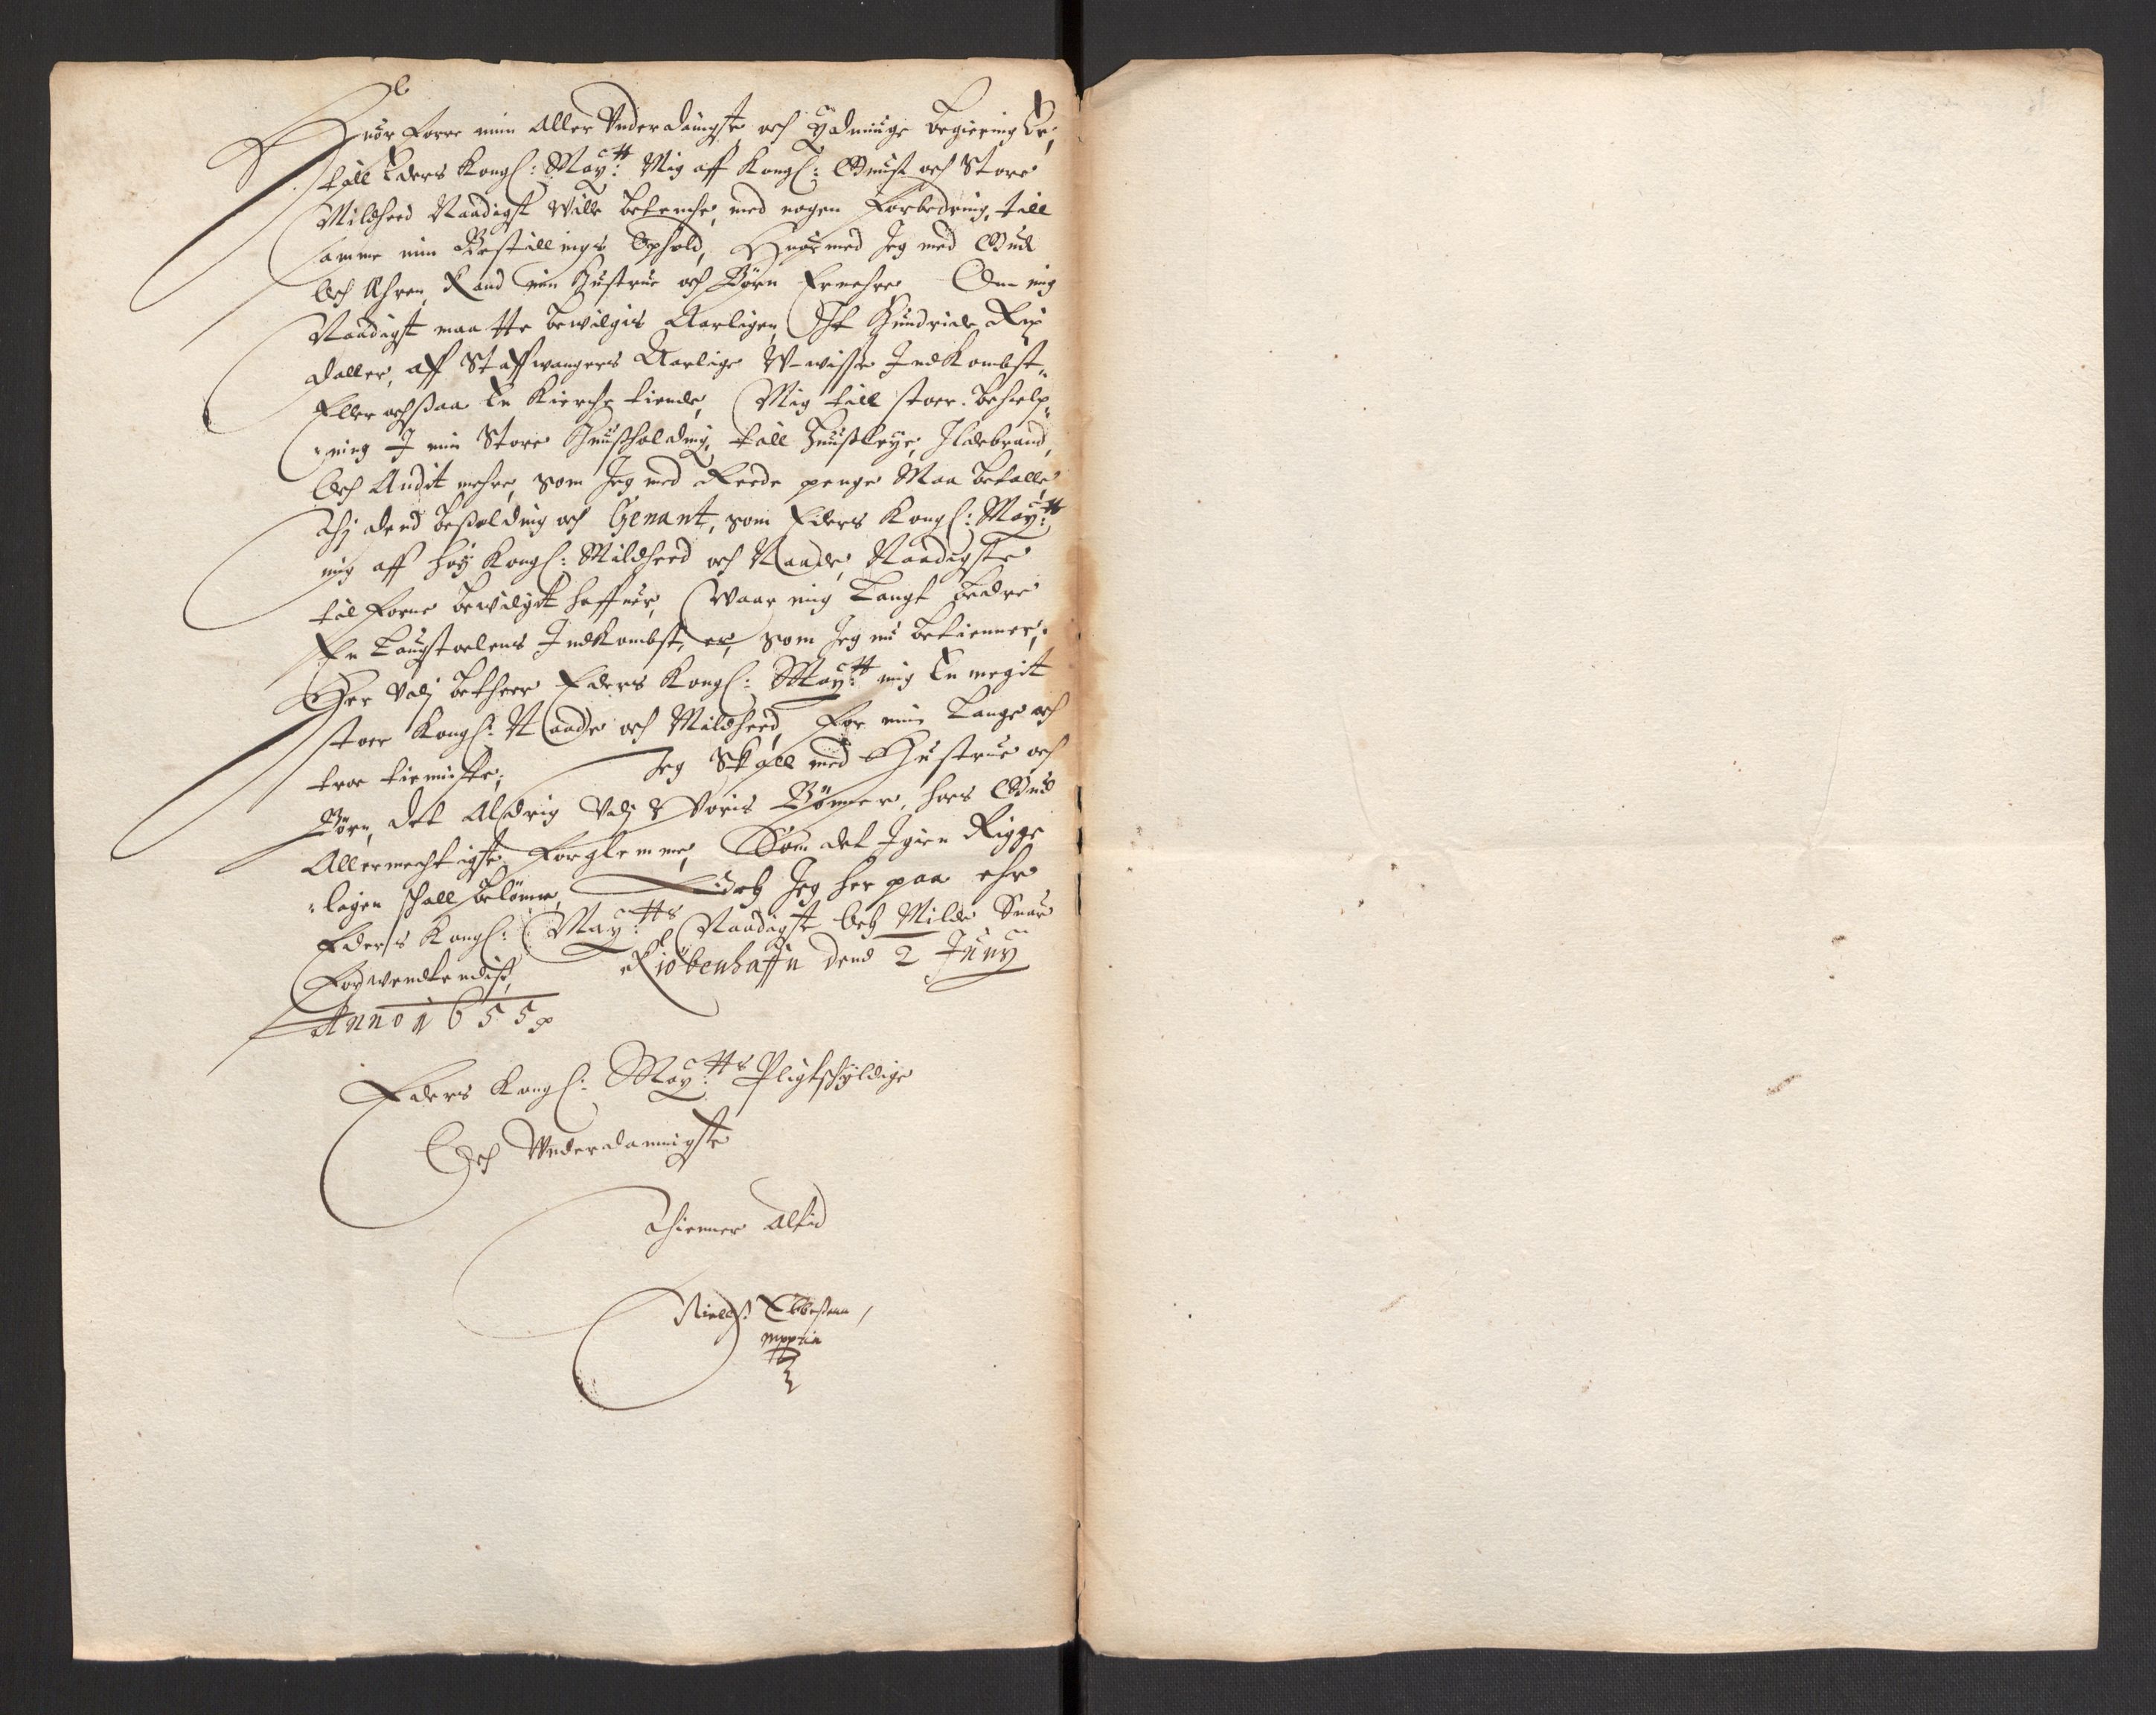 Huor Forre min Aller Vnderdanigste och Ydmiuge begiering Er,
till Eders Kongl: Maytt: Mig aff Kongl: Gunst och Store
Mildhed Naadigst wille betencke, med nogen Forbedring, till
samme min Bestillings Ophold, Huormed Jeg med Gud
Och Ähren Kand min Hustrue och Børn Ernehre Om mig
Naadigst maatte bewilgis Aarligen Hundride Rix
daller, aff Staffwangers Aarlige V-wisse Indkombst,
Eller ochsaa En Kierche tiende, Mig till stoer behielp
ning I min Store Huusholding, till Huusleye, Ildebrand,
Och Andit mehre, som Jeg med Reede penge Maa betalle
Thj dend besolding och Genant, som Eders Kongl: Maytt:
mig aff høy Kongl: Mildhed och Naade, Naadigste
til Forne bewilget haffuer, Waar mig Langt bedre
En Laugstoelens Indkombst, er, som Jeg nu betienner,
Her vdj beteer Eders Kongl: Maytt: mig En megit
stoer Kongl: Naade och Mildhed, For min Lange och
troe tienniste, Jeg Skall med Hustrue och
Børn, det Aldrig vdj Voris Bønner, hoes Gud
Allermechtigste Forglemme, Som det Igien Rigge
ligen schall belønne, Jeg her paa ehr
Eders Kongl: Maytts: Naadigste Och Milde Suar
Forwendtendiss, Kiøbenhaffn dend 2 Juny
Anno 1655
Eders Kongl: Maytts: Pligtschyldige
Och Vnderdannigste
Thienner Altid
Niells Ebbesenn
mppria